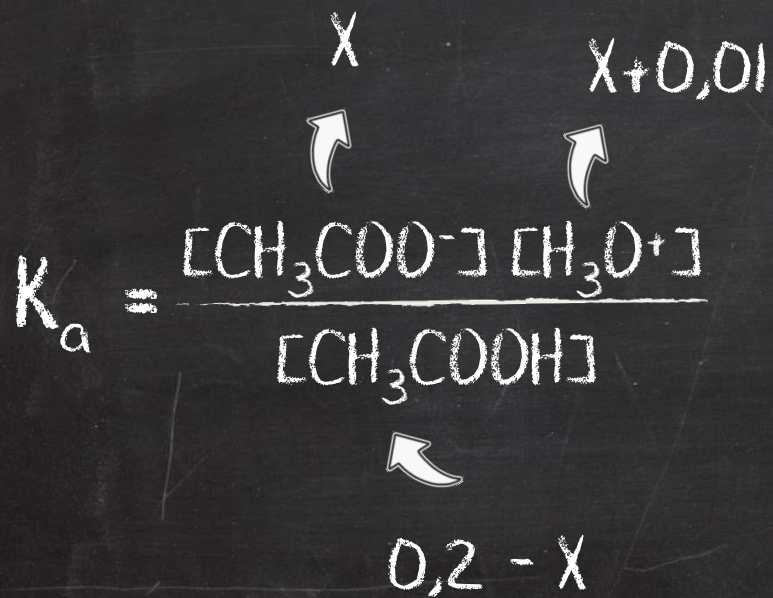 X
X+0,01
[CH₃COO⁻] [H₃O⁺]
Kₐ =
[CH₃COOH]
0,2 - X